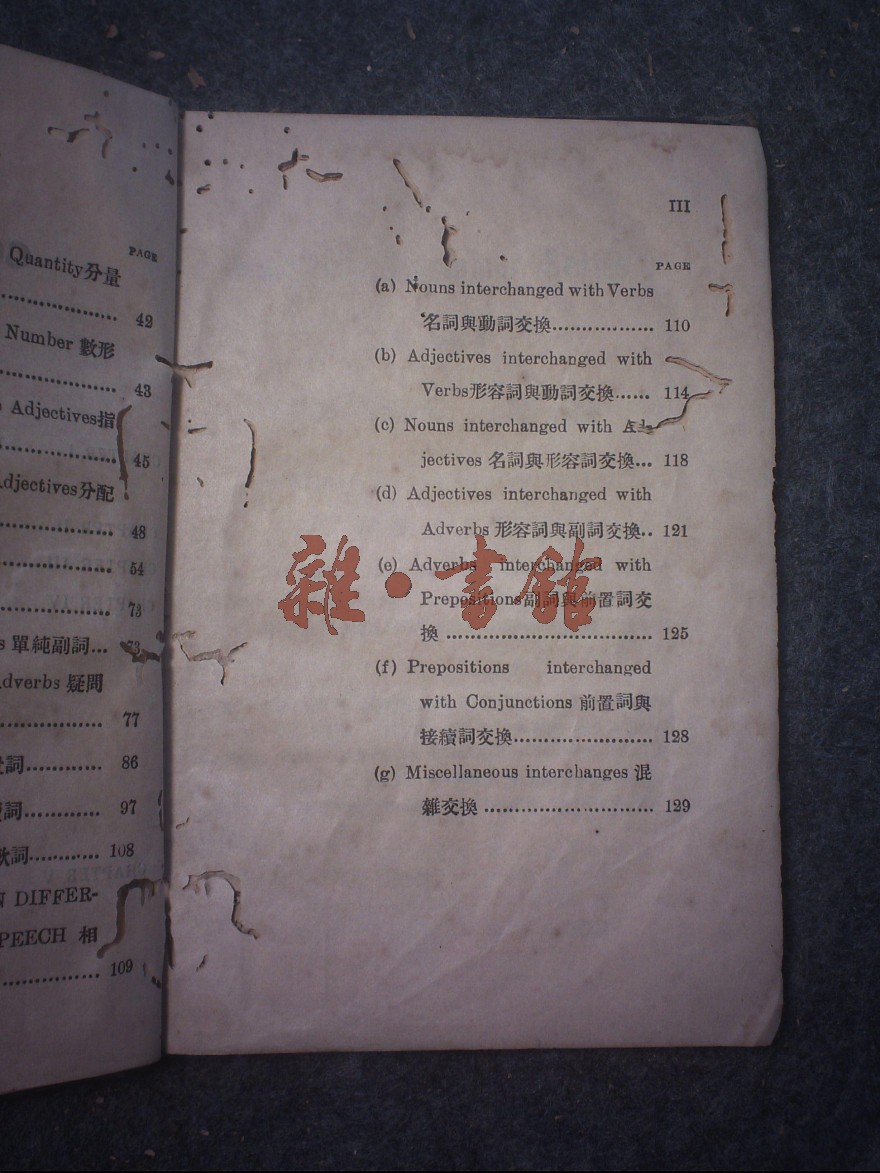 PAGE
Quantity分量
42
Number 數形
43
Adjectives指
45
djectives分配
48
54
73
s 單純副詞... 73
dverbs 疑問
77
詞............ 86
詞............ 97
歎詞............ 108
N DIFFER-
PEECH 相
109
III
PAGE
(a) Nouns interchanged with Verbs
名詞與動詞交換.................. 110
(b) Adjectives interchanged with
Verbs形容詞與動詞交換...... 114
(c) Nouns interchanged with Ad-
jectives 名詞與形容詞交換... 118
(d) Adjectives interchanged with
Adverbs 形容詞與副詞交換.. 121
(e) Adverbs interchanged with
Prepositions副詞與前置詞交
換 .................................... 125
(f) Prepositions interchanged
with Conjunctions 前置詞與
接續詞交換........................ 128
(g) Miscellaneous interchanges 混
雜交換 .............................. 129
雜·書館